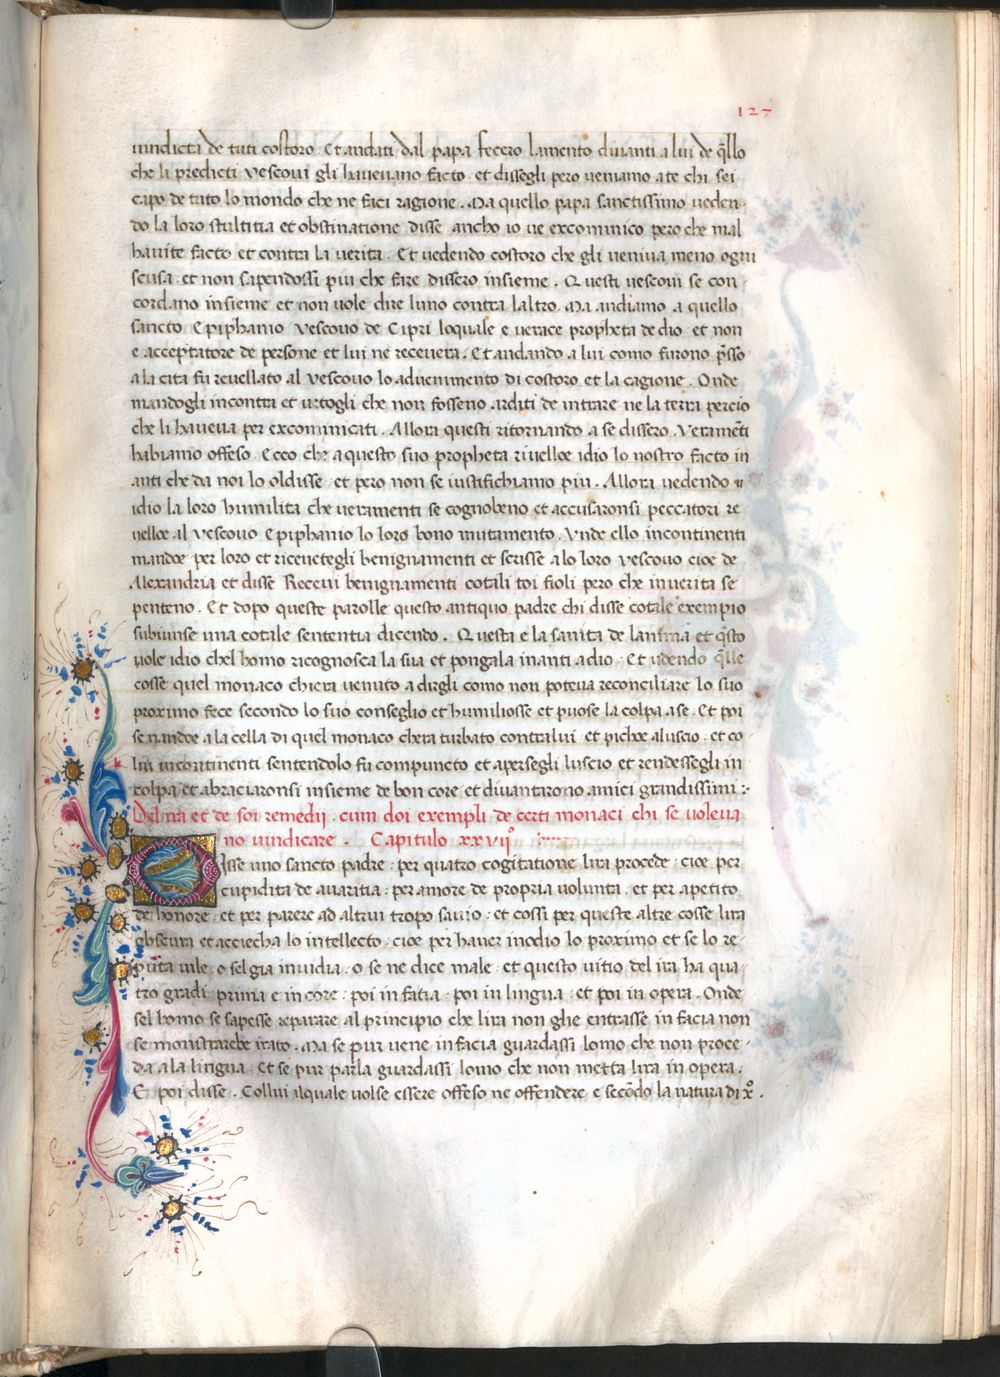 127
uindicta de tuti costoro. Et andati dal papa fecero lamento diuanti a lui de q̄llo
che li predicti vescoui gli haueuano facto et dissegli pero ueniamo a te chi sei
capo de tuto lo mondo che ne faci ragione. Ma quello papa sanctissimo ueden-
do la loro stultitia et obstinatione disse ancho io ue excominico pero che mal
hauite facto et contra la uerita. Et uedendo costoro che gli ueniua meno ogni
scusa et non sapendossi piu che fare dissero insieme. Questi vescoui se con
cordano insieme et non uole dire luno contra laltro. Ma andiamo a quello
sancto Epiphanio vescouo de Cipri loquale e uerace propheta de dio et non
e acceptatore de persone et lui ne receuera. Et andando a lui como furono p̄sso
a la cita fu reuellato al vescouo lo aduenimento di costoro et la cagione. Onde
mandogli incontra et uetogli che non fosseno arditi de intrare ne la terra percio
che li haueua per excominicati. Allora questi ritornando a se dissero. Veramēti
habiamo offeso. Ecco che a questo suo propheta riuelloe idio lo nostro facto in
anti che da noi lo oldisse et pero non se iustifichiamo piu. Allora uedendo
idio la loro humilita che ueramenti se cognobeno et accusaronsi peccatori re
uelloe al vescouo Epiphanio lo loro bono mutamento. Vnde ello incontinenti
mandoe per loro et riceuetegli benignamenti et scrisse a lo loro vescouo cioe de
Alexandria et disse Receui benignamenti cotali toi fioli pero che inuerita se
penteno. Et dopo queste parolle questo antiquo padre chi disse cotale exempio
subiunse una cotale sententia dicendo. Questa e la sanita de lanima et q̄sto
uole idio chel homo ricognosca la sua et pongala inanti a dio. Et udendo q̄lle
cosse quel monaco chiera uenuto a dirgli como non poteua reconciliare lo suo
proximo fece secondo lo suo conseglio et humiliosse et puose la colpa a se. Et poi
se nandoe a la cella di quel monaco chera turbato contra lui et pichoe a luscio et co
lui incontinenti sentendolo fu compuncto et apersegli luscio et rendessegli in
colpa et abraciaronsi insieme de bon core et diuantarono amici grandissimi:-
Del ira et de soi remedij. cum doi exempli de certi monaci chi se uoleua
no uindicare. Capitulo xxvijº
Disse uno sancto padre per quatro cogitatione lira procede cioe per
cupidita de auaritia per amore de propria uolunta et per apetito
de honore et per parere ad altrui tropo sauio et cossi per queste altre cosse lira
obscura et acciecha lo intellecto cioe per hauer inodio lo proximo et se lo re-
puta uile o sel gia inuidia o se ne dice male et questo uitio del ira ha qua
tro gradi prima e in core poi in facia poi in lingua et poi in opera. Onde
sel homo se sapesse reparare al principio che lira non ghe entrasse in facia non
se monstrarebe irato. Ma se pur uene in facia guardassi lomo che non proce-
da a la lingua. Et se pur parla guardassi lomo che non metta lira in opera.
E poi disse. Collui ilquale uolse essere offeso ne offendere e secōdo la natura di xº.